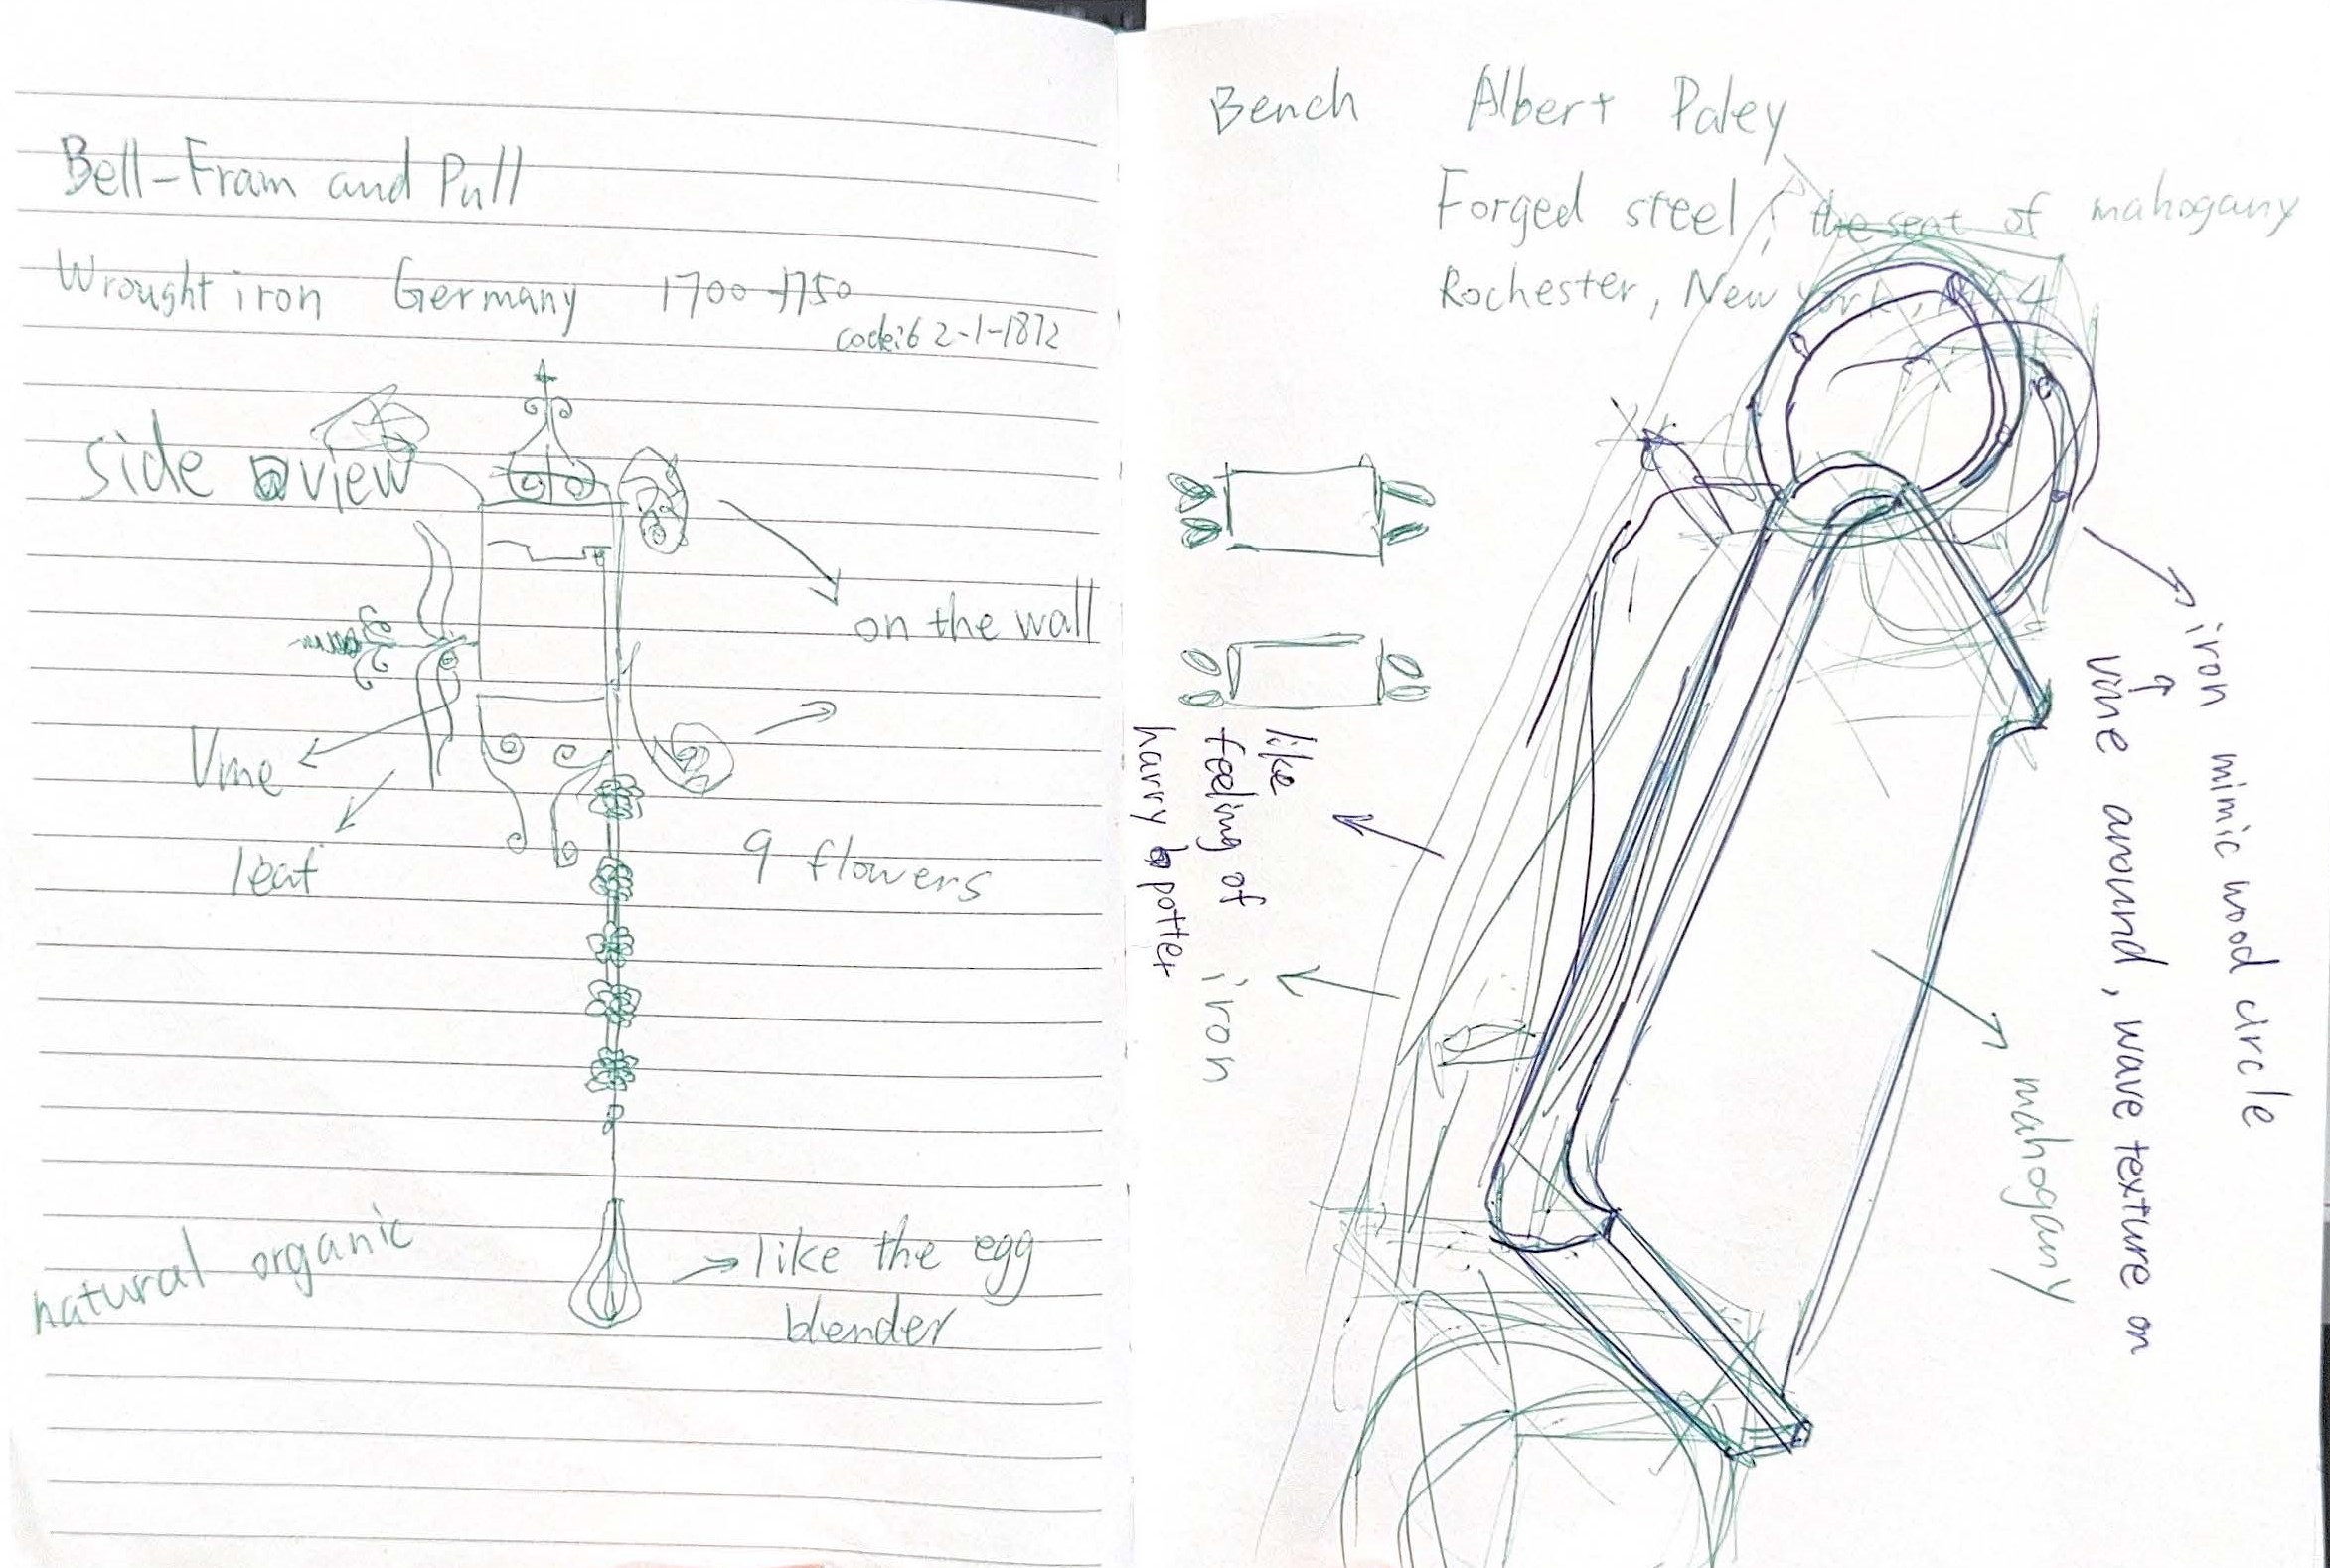 Bell-Fram and Pull
Wrought iron Germany 1700-1750
code:62-1-1872
side view
on the wall
Vine
leaf
9 flowers
natural organic
like the egg
blender
Bench Albert Paley
Forged steel, the seat of mahogany
Rochester, New York,
like
feeling of
harry potter
iron
iron mimic wood circle
vine around, wave texture on
mahogany